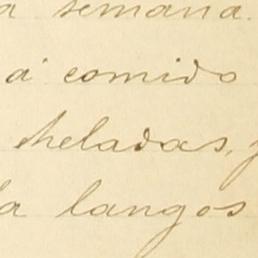 a semana.
á comido
heladas,
la langos